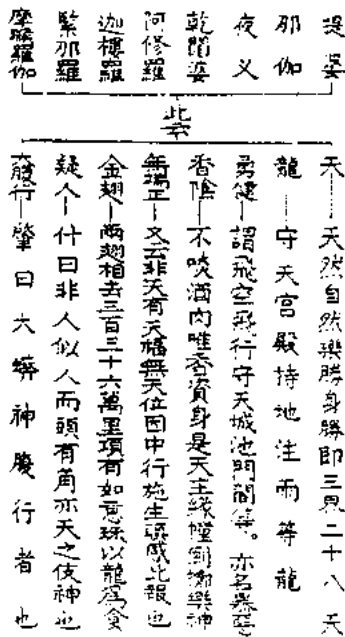 提婆
那伽
夜叉
乾闥婆
阿修羅
迦樓羅
緊那羅
摩睺羅伽
此云
天—天然自然樂勝身勝即三界二十八天
龍—守天宮殿持地注雨等龍
勇健—謂飛空飛行守天城池門閣等。亦名暴惡
香陰—不啖酒肉唯香資身是天主緣幢倒擲樂神
無端正—又云非天有天福無天位因中行施生嗔感此報也
金翅—兩翅相去三百三十六萬里項有如意珠以龍為食
疑人—什曰非人似人而頭有角亦天之伎神也
腹行—肇曰大蟒神腹行者也